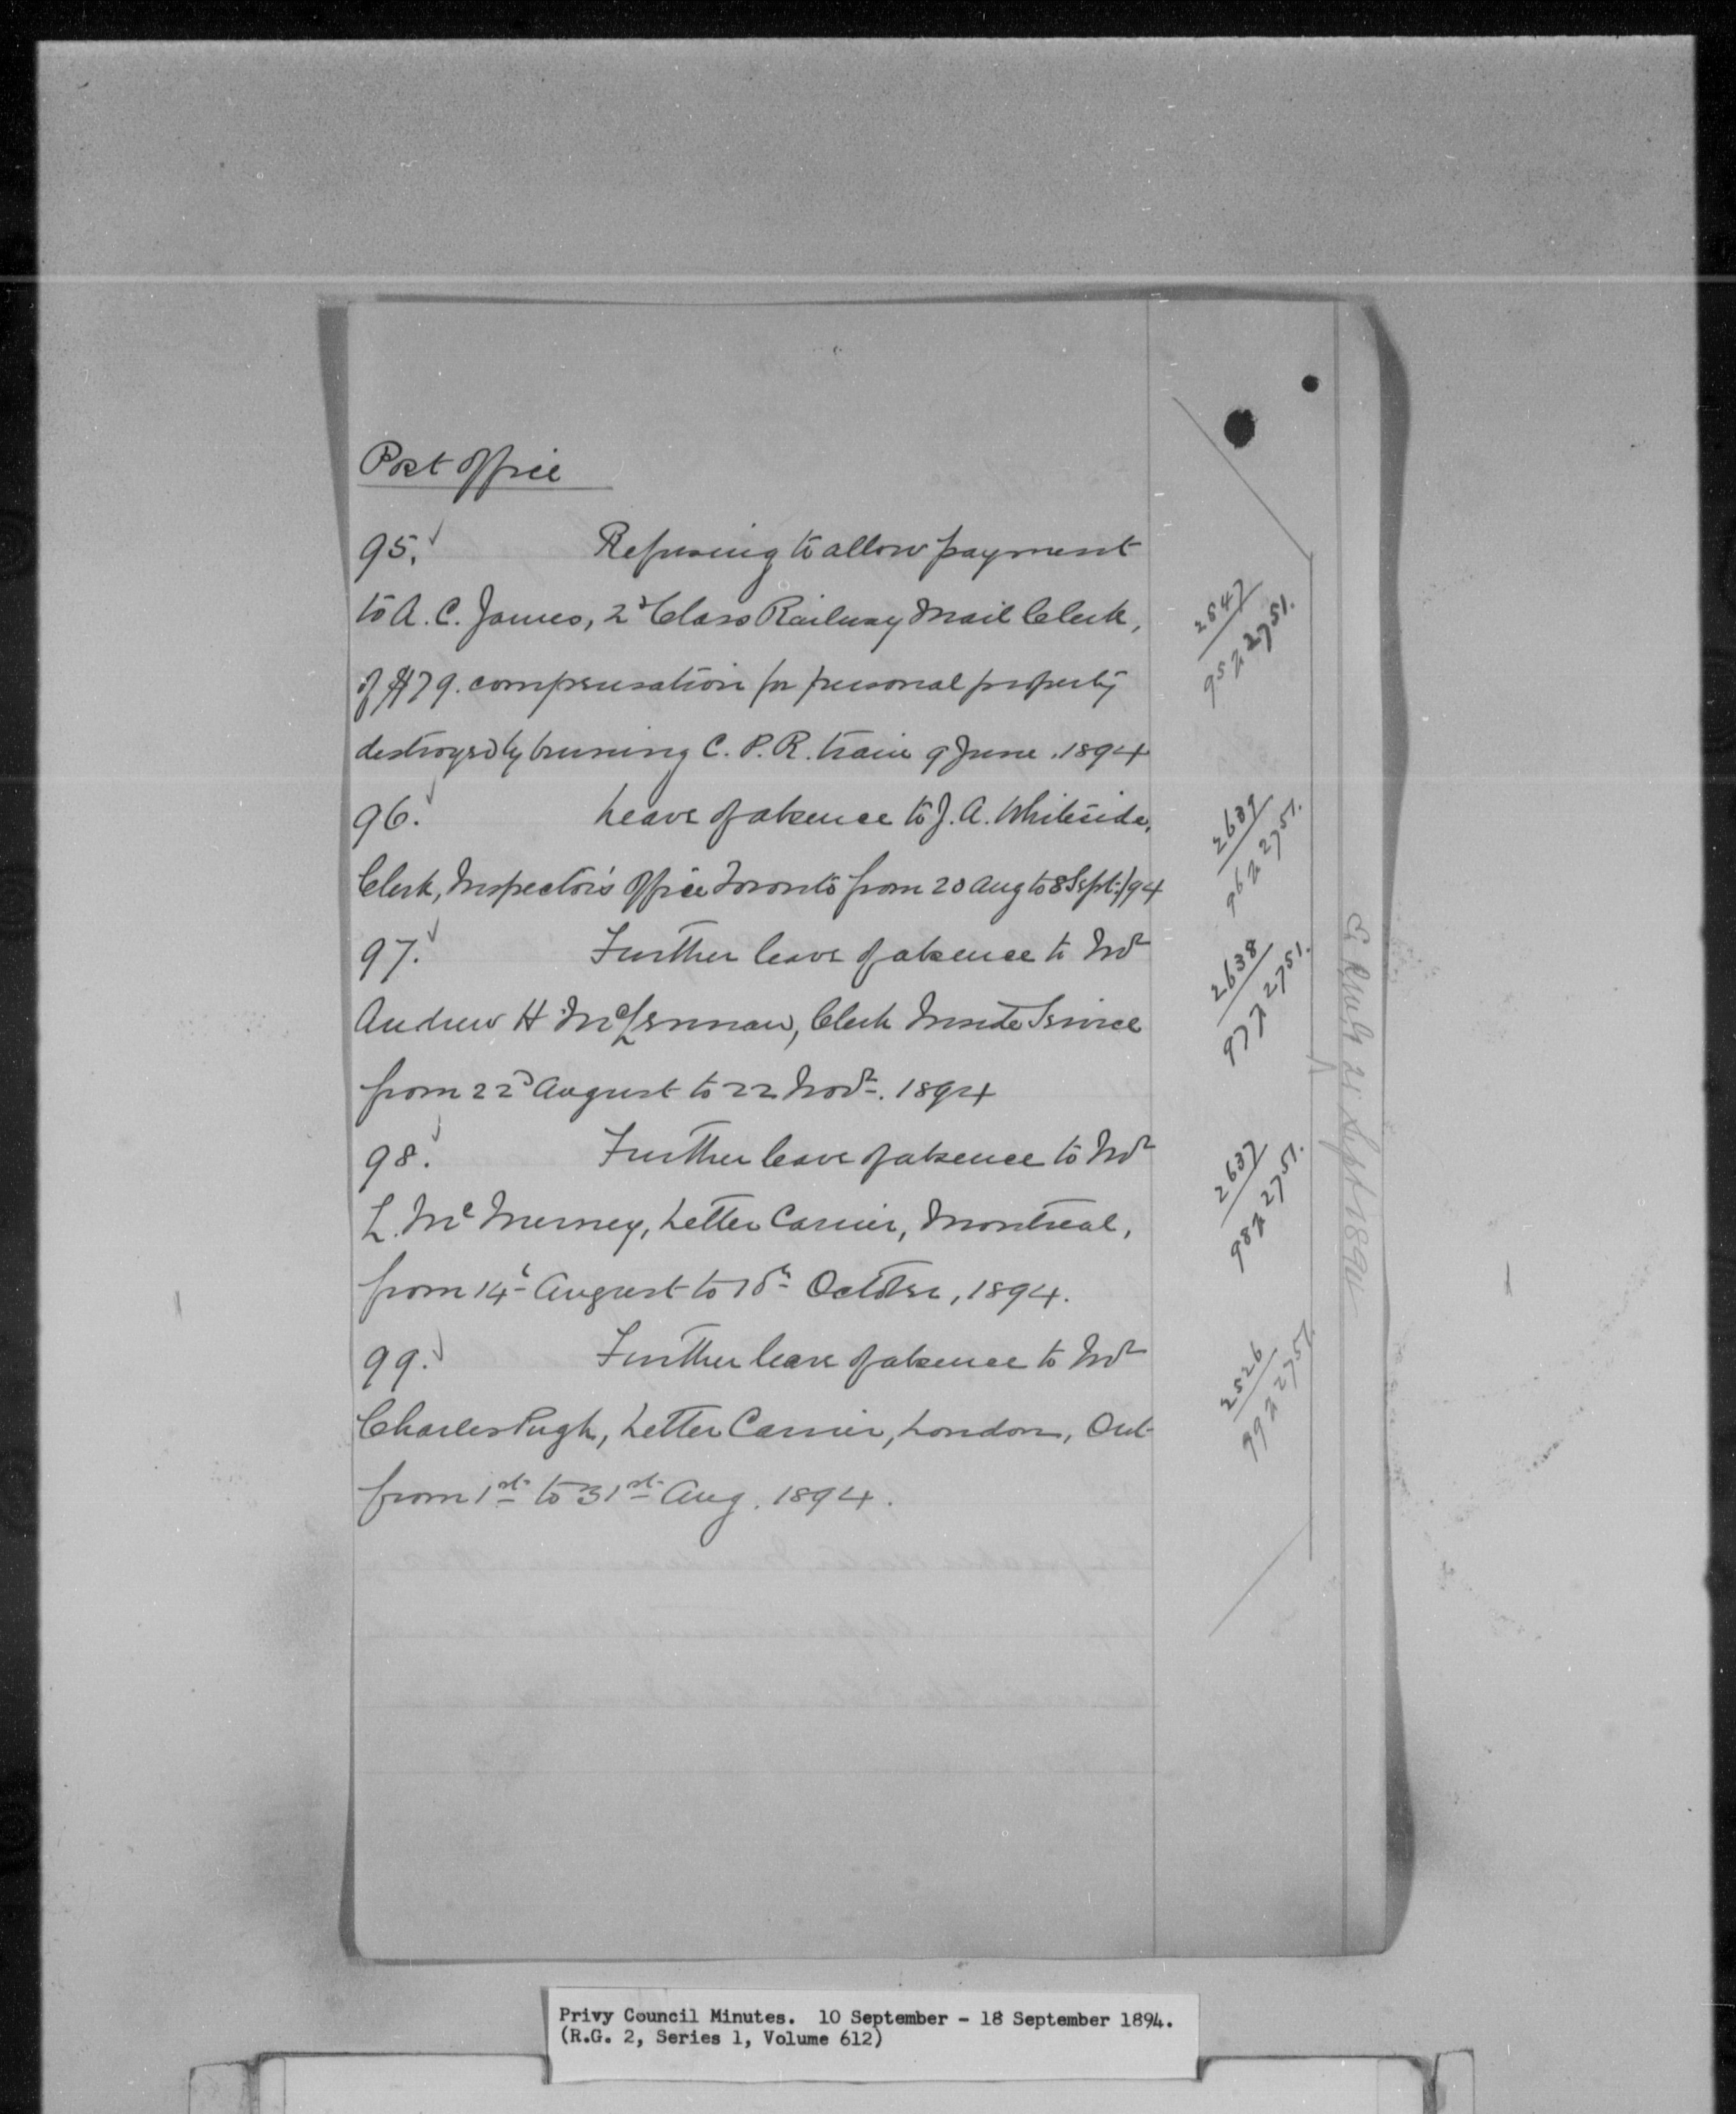 Post Office
95. Refusing to allow payment
to A. C. James, 2d Class Railway Mail Clerk,
of $79. compensation for personal property
destroyed by burning C. P. R. train 9 June. 1894
2547
95 2751.
96. Leave of absence to J. A. Whiteside,
Clerk, Inspector's Office Toronto from 20 Aug to 8 Sept:/94
2639
96 2751.
97. Further leave of absence to Mr
Andrew H McLennan, Clerk Inside Service
from 22d August to 22 Novr. 1894
2638
97 2751.
98. Further leave of absence to Mr
L. McInerney, Letter Carrier, Montreal,
from 14th August to October, 1894.
2637
98 2751.
99. Further leave of absence to Mr
Charles Pugh, Letter Carrier, London, Ont
from 1st to 31st Aug. 1894.
2526
99 2751
21 Sept 1894
Privy Council Minutes. 10 September - 18 September 1894.
(R.G. 2, Series 1, Volume 612)